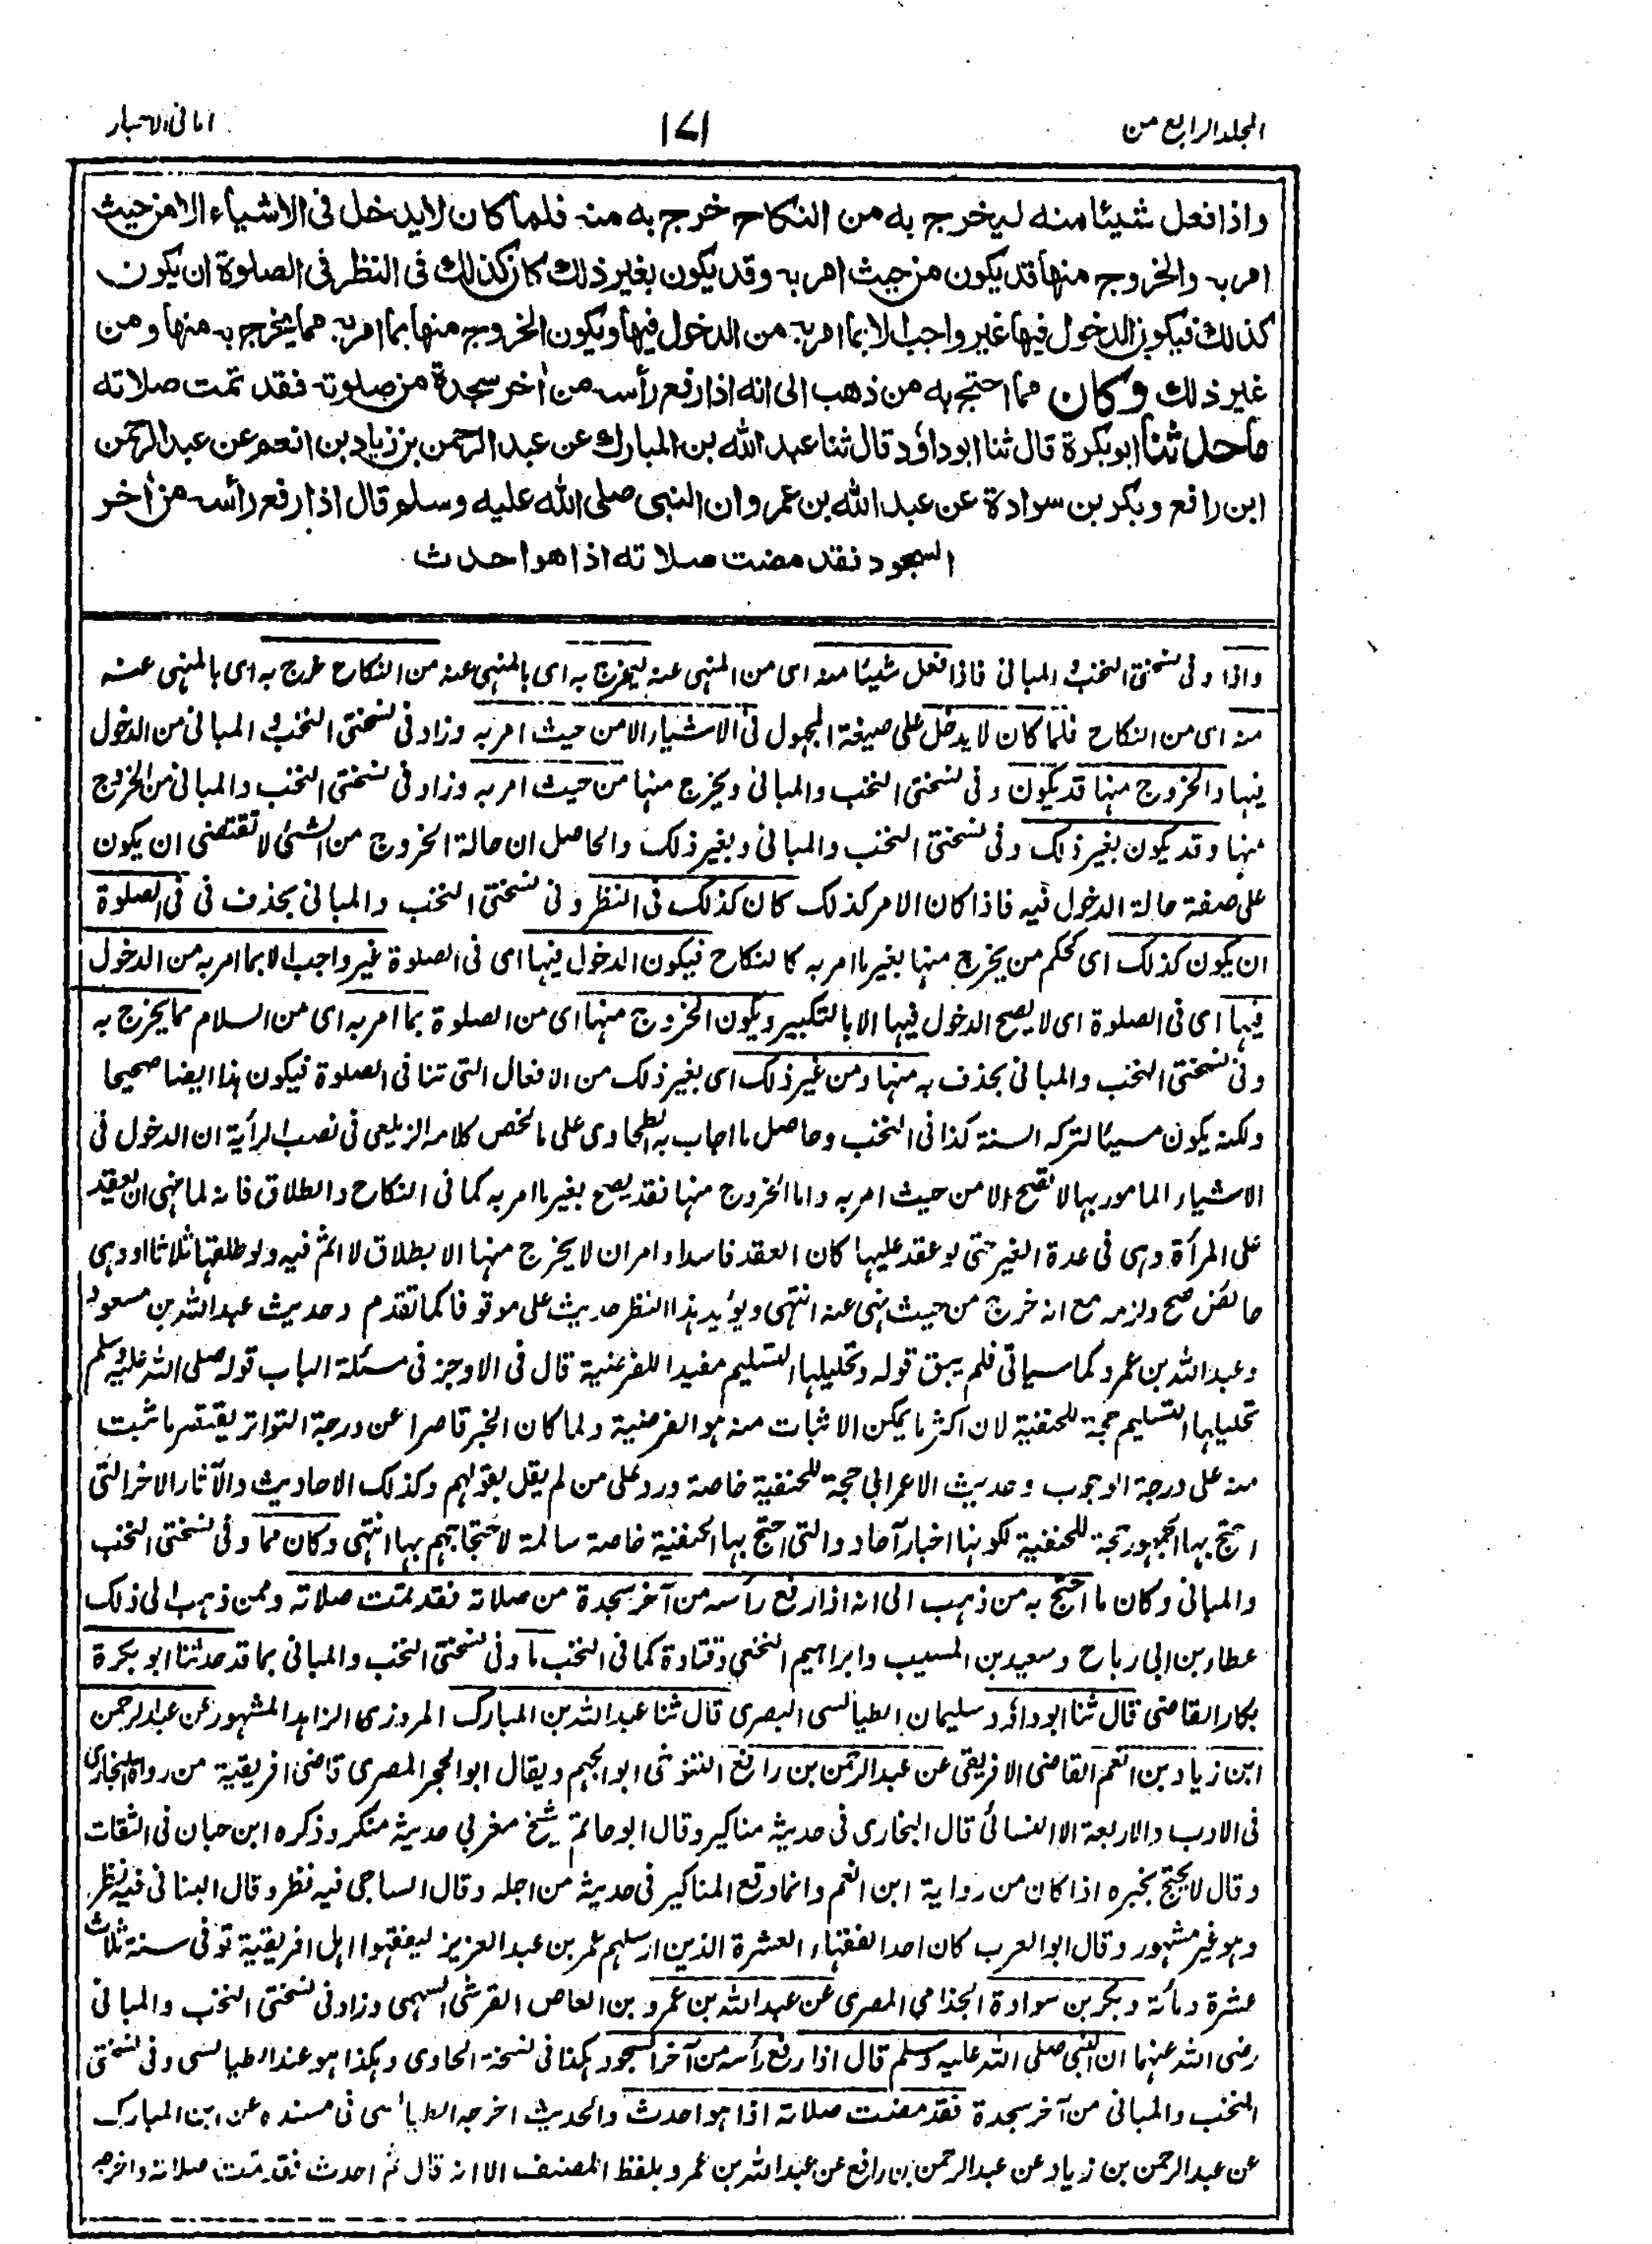 المجلد الرابع من
۱۷۱
امانی الاحبار
واذا فعل شيئا منه ليخرج به من النكاح خرج به منه فلما كان لا يدخل في الاشياء الا من حيث
امر به والخروج منها قد يكون من حيث امر به وقد يكون بغير ذلك كان كذلك في النظر في الصلوة ان يكون
كذلك فيكون الدخول فيها غير واجب الا بما امر به من الدخول فيها ويكون الخروج منها بما امر به مما يخرج به منها ومن
غير ذلك وكان مما احتج به من ذهب الى انه اذا رفع رأسه من أخر سجدة من صلوته فقد تمت صلاته
ما حدثنا ابو بكرة قال ثنا ابو داؤد قال ثنا عبد الله بن المبارك عن عبد الرحمن بن زياد بن انعم عن عبد الرحمن
ابن رافع وبكر بن سوادة عن عبد الله بن عمرو ان النبى صلى الله عليه وسلم قال اذا رفع رأسه من أخر
السجود فقد مضت صلاته اذا هو احدث
واذا وفى نسختى النخب والمبانى فاذا فعل شيئا منه اى من المنهى عنه ليخرج به اى بالمنهى عنه من النكاح خرج به اى بالمنهى عنه
منه اى من النكاح فلما كان لا يدخل على صيغة المجهول فى الاشياء الا من حيث امر به وزاد فى نسختى النخب والمبانى من الدخول
فيها والخروج منها قد يكون وفى نسختى النخب والمبانى ويخرج منها من حيث امر به وزاد فى نسختى النخب والمبانى من الخروج
منها وقد يكون بغير ذلك وفى نسختى النخب والمبانى وبغير ذلك والحاصل ان حالة الخروج من الشئ لا تقتضى ان يكون
على صفة حالة الدخول فيه فاذا كان الامر كذلك كان كذلك فى النظر وفى نسختى النخب والمبانى بحذف فى فى الصلوة
ان يكون كذلك اى كحكم من يخرج منها بغير ما امر به كالنكاح فيكون الدخول فيها اى فى الصلوة غير واجب الا بما امر به من الدخول
فيها اى فى الصلوة اى لا يصح الدخول فيها الا بالتكبير ويكون الخروج منها اى من الصلوة بما امر به اى من السلام مما يخرج به
وفى نسختى النخب والمبانى بحذف به منها ومن غير ذلك اى بغير ذلك من الافعال التى تنافى الصلوة فيكون هذا ايضا صحيحا
ولكنه يكون مسيئا لتركه السنة كذا فى النخب وحاصل ما اجاب به الطحاوى على ما لخص كلامه الزيلعى فى نصب الرأية ان الدخول فى
الاشياء المامور بها لا تصح الا من حيث امر به واما الخروج منها فقد يصح بغير ما امر به كما فى النكاح والطلاق فانه لما نهى ان يعقد
على المرأة وهى فى عدة الغير حتى لو عقد عليها كان العقد فاسدا وامر ان لا يخرج منها الا بطلاق لا اثم فيه ولو طلقها ثلاثا او وهى
حائض صح ولزمه مع انه خرج من حيث نهى عنه انتهى ويؤيد هذا النظر حديث على موقوفا كما تقدم وحديث عبد الله بن مسعود
وعبد الله بن عمرو كما سياتى فلم يبق قوله وتحليلها التسليم مفيدا للفرضية قال فى الاوجز فى مسئلة الباب قوله صلى الله عليه وسلم
تحليلها التسليم حجة للحنفية لان اكثر ما يمكن الاثبات منه هو الفرضية ولما كان الخبر قاصرا عن درجة التواتر يقتصر ما ثبت
منه على درجة الوجوب وحديث الاعرابى حجة للحنفية خاصة ورد على من لم يقل بقولهم وكذلك الاحاديث والآثار الاخر التى
احتج بها الجمهور حجة للحنفية لكونها اخبار آحاد والتى احتج بها الحنفية خاصة سالمة لاحتجاجهم بها انتهى وكان مما وفى نسختى النخب
والمبانى وكان ما احتج به من ذهب الى انه اذا رفع رأسه من آخر سجدة من صلاته فقد تمت صلاته وممن ذهب الى ذلك
عطاء بن ابى رباح وسعيد بن المسيب وابراهيم النخعى وقتادة كما فى النخب ما وفى نسختى النخب والمبانى بما قد حدثنا ابو بكرة
بكار القاضى قال ثنا ابو داؤد سليمان الطيالسى البصرى قال ثنا عبد الله بن المبارك المروزى الزاهد المشهور عن عبد الرحمن
ابن زياد بن انعم القاضى الافريقى عن عبد الرحمن بن رافع التنوخى ابو الجهم ويقال ابو الحجر المصرى قاضى افريقية من رواة البخارى
فى الادب والاربعة الا النسائى قال البخارى فى حديثه مناكير وقال ابو حاتم شيخ مغربى حديثه منكر وذكره ابن حبان فى الثقات
وقال لا يحتج بخبره اذا كان من رواية ابن انعم وانما وقع المناكير فى حديثه من اجله وقال الساجى فيه نظر وقال البنانى فيه نظر
وهو غير مشهور وقال ابو العرب كان احد الفقهاء العشرة الذين ارسلهم عمر بن عبد العزيز ليفقهوا اهل افريقية توفى سنة ثلاث
عشرة ومائة وبكر بن سوادة الجذامى المصرى عن عبد الله بن عمرو بن العاص القرشى السهمى وزاد فى نسختى النخب والمبانى
رضى الله عنهما ان النبى صلى الله عليه وسلم قال اذا رفع رأسه من آخر السجود هكذا فى نسخة الحاوى وهكذا هو عند الطيالسى وفى نسختى
النخب والمبانى من آخر سجدة فقد مضت صلاته اذا هو احدث والحديث اخرجه الطيالسى فى مسنده عن ابن المبارك
عن عبد الرحمن بن زياد عن عبد الرحمن بن رافع عن عبد الله بن عمرو بلفظ المصنف الا انه قال ثم احدث فقد تمت صلاته واخرجه